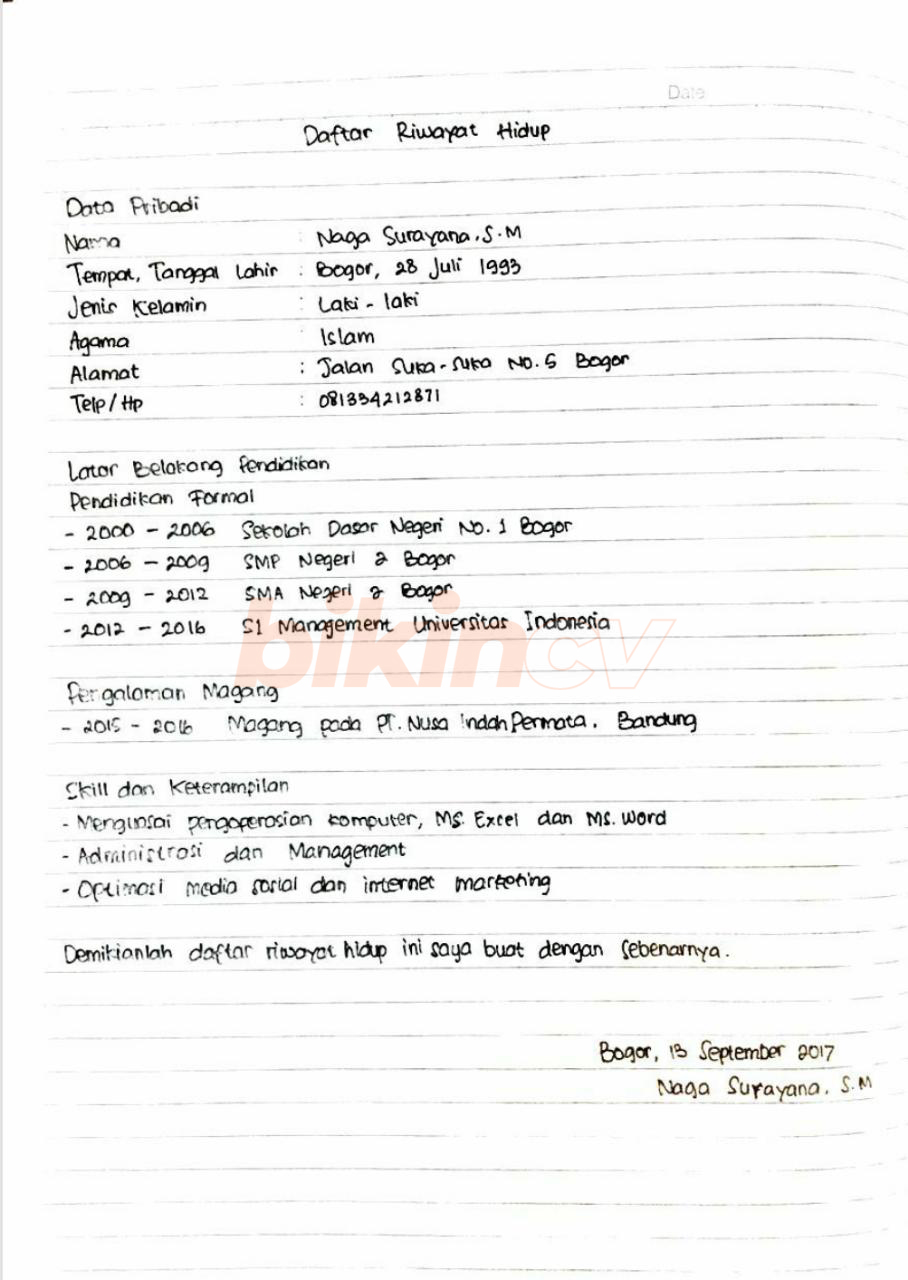 Date
Daftar Riwayat Hidup
Data Pribadi
Nama : Naga Surayana, S.M
Tempat, Tanggal Lahir : Bogor, 28 Juli 1993
Jenis Kelamin : Laki - laki
Agama : Islam
Alamat : Jalan Suka-Suka No. 5 Bogor
Telp/Hp : 081334212871
Latar Belakang Pendidikan
Pendidikan Formal
- 2000 - 2006 Sekolah Dasar Negeri No. 1 Bogor
- 2006 - 2009 SMP Negeri 2 Bogor
- 2009 - 2012 SMA Negeri 2 Bogor
- 2012 - 2016 S1 Management Universitas Indonesia
bikincv
Pengalaman Magang
- 2015 - 2016 Magang pada PT. Nusa Indah Permata, Bandung
Skill dan Keterampilan
- Menguasai pengoperasian komputer, MS. Excel dan MS. Word
- Administrasi dan Management
- Optimasi media sosial dan internet marketing
Demikianlah daftar riwayat hidup ini saya buat dengan sebenarnya.
Bogor, 13 September 2017
Naga Surayana, S.M